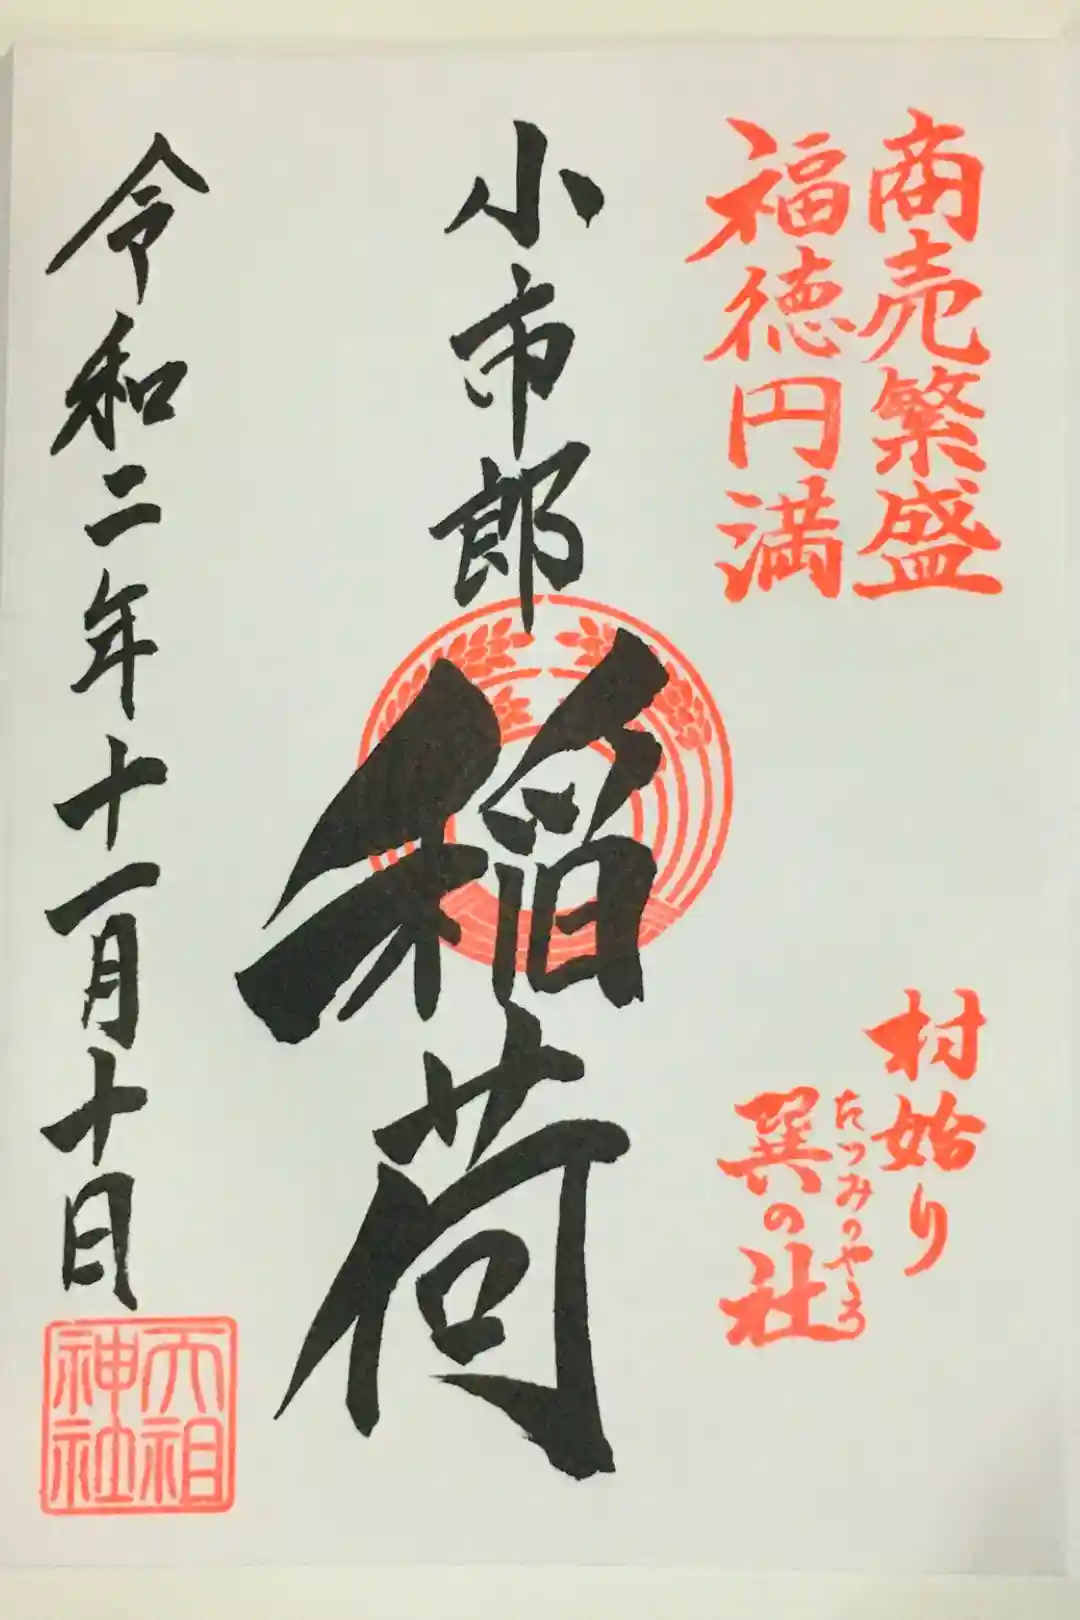 商売繁盛
福徳円満
村始り
巽の社
たつみのやしろ
小市郎
稲荷
令和二年十一月十日
天祖
神社